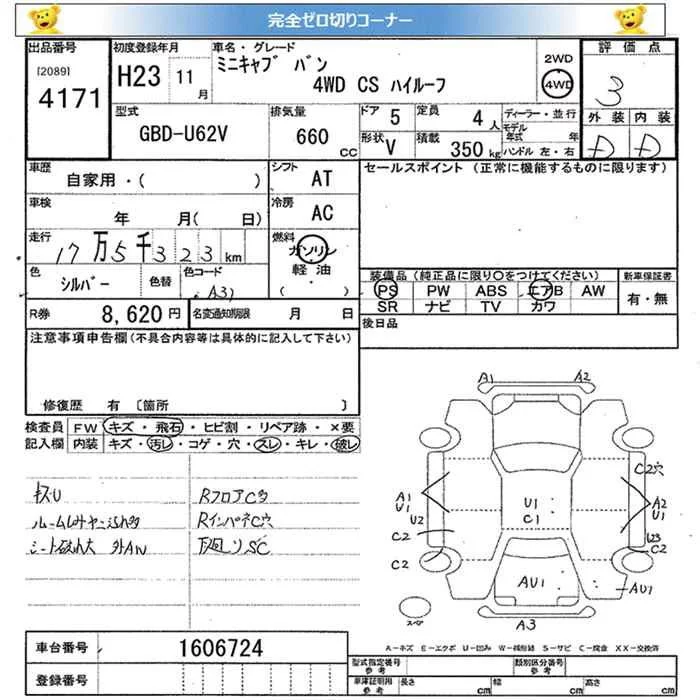 完全ゼロ切りコーナー
出品番号
[2089]
4171
初度登録年月
H23 11月
車名・グレード
ミニキャブ バン
4WD CS ハイルーフ
2WD
4WD
評価点
3
外装 内装
D D
型式
GBD-U62V
排気量
660 CC
ドア 5
定員 4 人
形状 V
積載 350 kg
ディーラー・並行
モデル年式 年
ハンドル 左・右
車歴
自家用・( )
シフト AT
車検
年 月( 日)
冷房 AC
走行
17万5千323 km
燃料
ガソリン
軽油
( )
色
シルバー
色替
色コード
A31
R券 8,620 円
名変通知期限 月 日
セールスポイント (正常に機能するものに限ります)
装備品 (純正品に限り〇をつけてください)
PS PW ABS エアB AW
SR ナビ TV カワ
新車保証書
有・無
後日品
注意事項申告欄(不具合内容等は具体的に記入して下さい)
修復歴 有 〔箇所 〕
検査員記入欄
FW キズ・飛石・ヒビ割・リペア跡・×要
内装 キズ・汚レ・コゲ・穴・スレ・キレ・破レ
キズU
ルーム
シート破れ大 外AN
RフロアC多
RインパネC穴
下廻りSC
A1 A2
C2穴
A1
U1
U2
C2
C2
U1
C1
A2
U1
C2
AU1
AU1
A3
スペア
A-キズ E-エクボ U-凹み W-補修跡 S-サビ C-腐食 XX-交換済
車台番号 1606724
登録番号
型式指定番号
参考
類別区分番号
参考
車庫証明用
参考
長さ cm
幅 cm
高さ cm